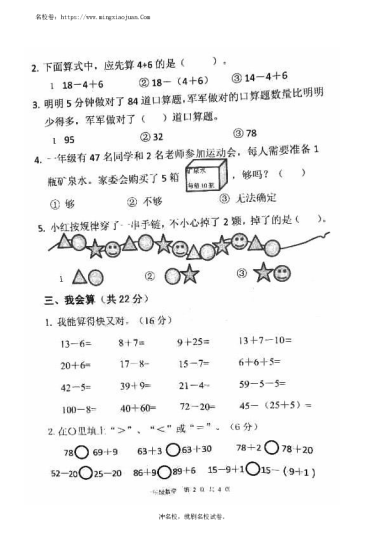 名校卷：https://www.mingxiaojuan.Com
2. 下面算式中，应先算 4+6 的是（　）。
1 18－4＋6 ② 18－（4＋6） ③ 14－4＋6
3. 明明 5 分钟做对了 84 道口算题，军军做对的口算题数量比明明
少得多，军军做对了（　）道口算题。
1 95 ② 32 ③ 78
4. 一年级有 47 名同学和 2 名老师参加运动会，每人需要准备 1
瓶矿泉水。家委会购买了 5 箱 矿泉水 每箱10瓶 ，够吗？（　）
① 够 ② 不够 ③ 无法确定
5. 小红按规律穿了一串手链，不小心掉了 2 颗，掉了的是（　）。
1 ② ③
三、我会算（共 22 分）
1. 我能算得快又对。（16 分）
13－6= 8＋7= 9＋25= 13＋7－10=
20＋6= 17－8- 15－7= 6＋6＋5=
42－5= 39＋9= 21－4- 59－5－5=
100－8= 40＋60= 72－20= 45－（25＋5）=
2. 在○里填上“＞”、“＜”或“＝”。（6 分）
78○69＋9 63＋3○63＋30 78＋2○78＋20
52－20○25－20 86＋9○89＋6 15－9＋1○15－（9＋1）
一年级数学 第 2 页 共 4 页
冲名校，就刷名校试卷。